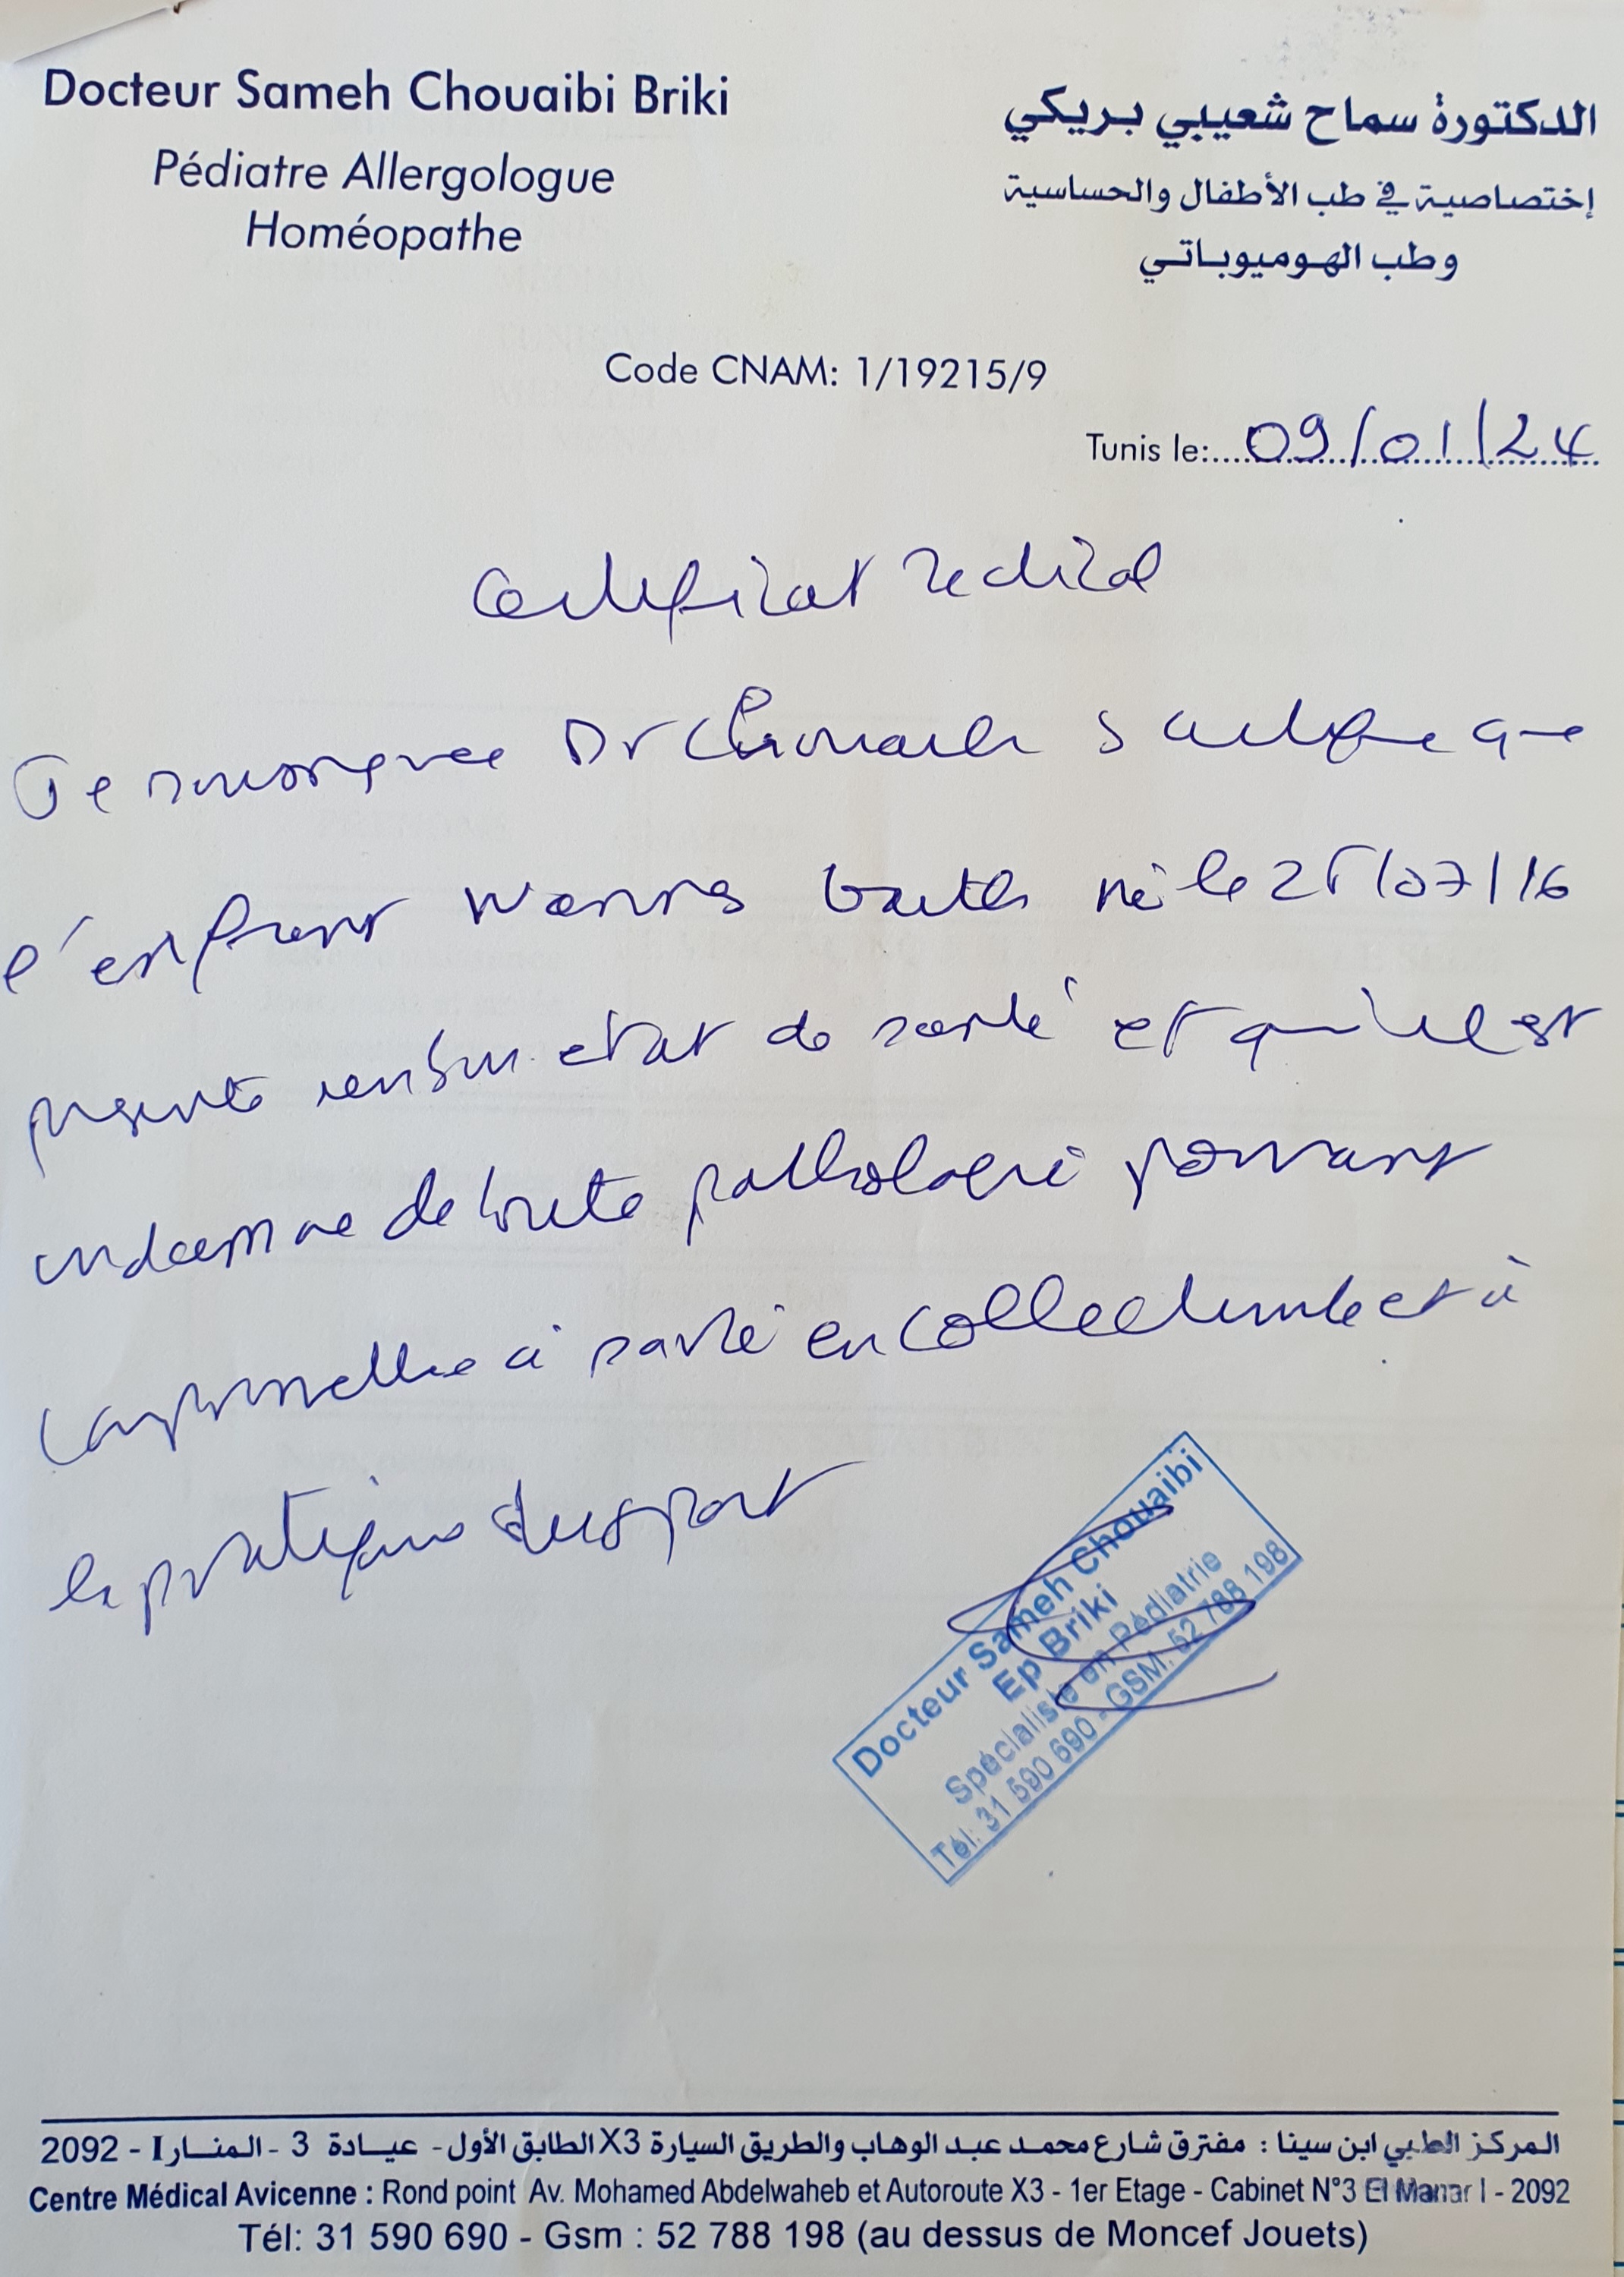 Docteur Sameh Chouaibi Briki
Pédiatre Allergologue
Homéopathe
الدكتورة سماح شعيبي بريكي
إختصاصية في طب الأطفال والحساسية
وطب الهوميوباتي
Code CNAM: 1/19215/9
Tunis le:....09/01/24
Certificat Medical
Je soussignée Dr Chouaibi S certifie que
l'enfant né le /07/16
présente un bon etat de santé et qu'il est
indemne de toute pathologie pouvant
compromettre à santé en collectivité et à
la pratique du sport
Docteur Sameh Chouaibi
Ep Briki
Spécialiste en Pédiatrie
Tél: 31 590 690 - GSM: 52 788 198
المركز الطبي ابن سينا : مفترق شارع محمد عبد الوهاب والطريق السيارة X3 الطابق الأول - عيادة 3 - المنار I - 2092
Centre Médical Avicenne : Rond point Av. Mohamed Abdelwaheb et Autoroute X3 - 1er Etage - Cabinet N°3 El Manar I - 2092
Tél: 31 590 690 - Gsm : 52 788 198 (au dessus de Moncef Jouets)